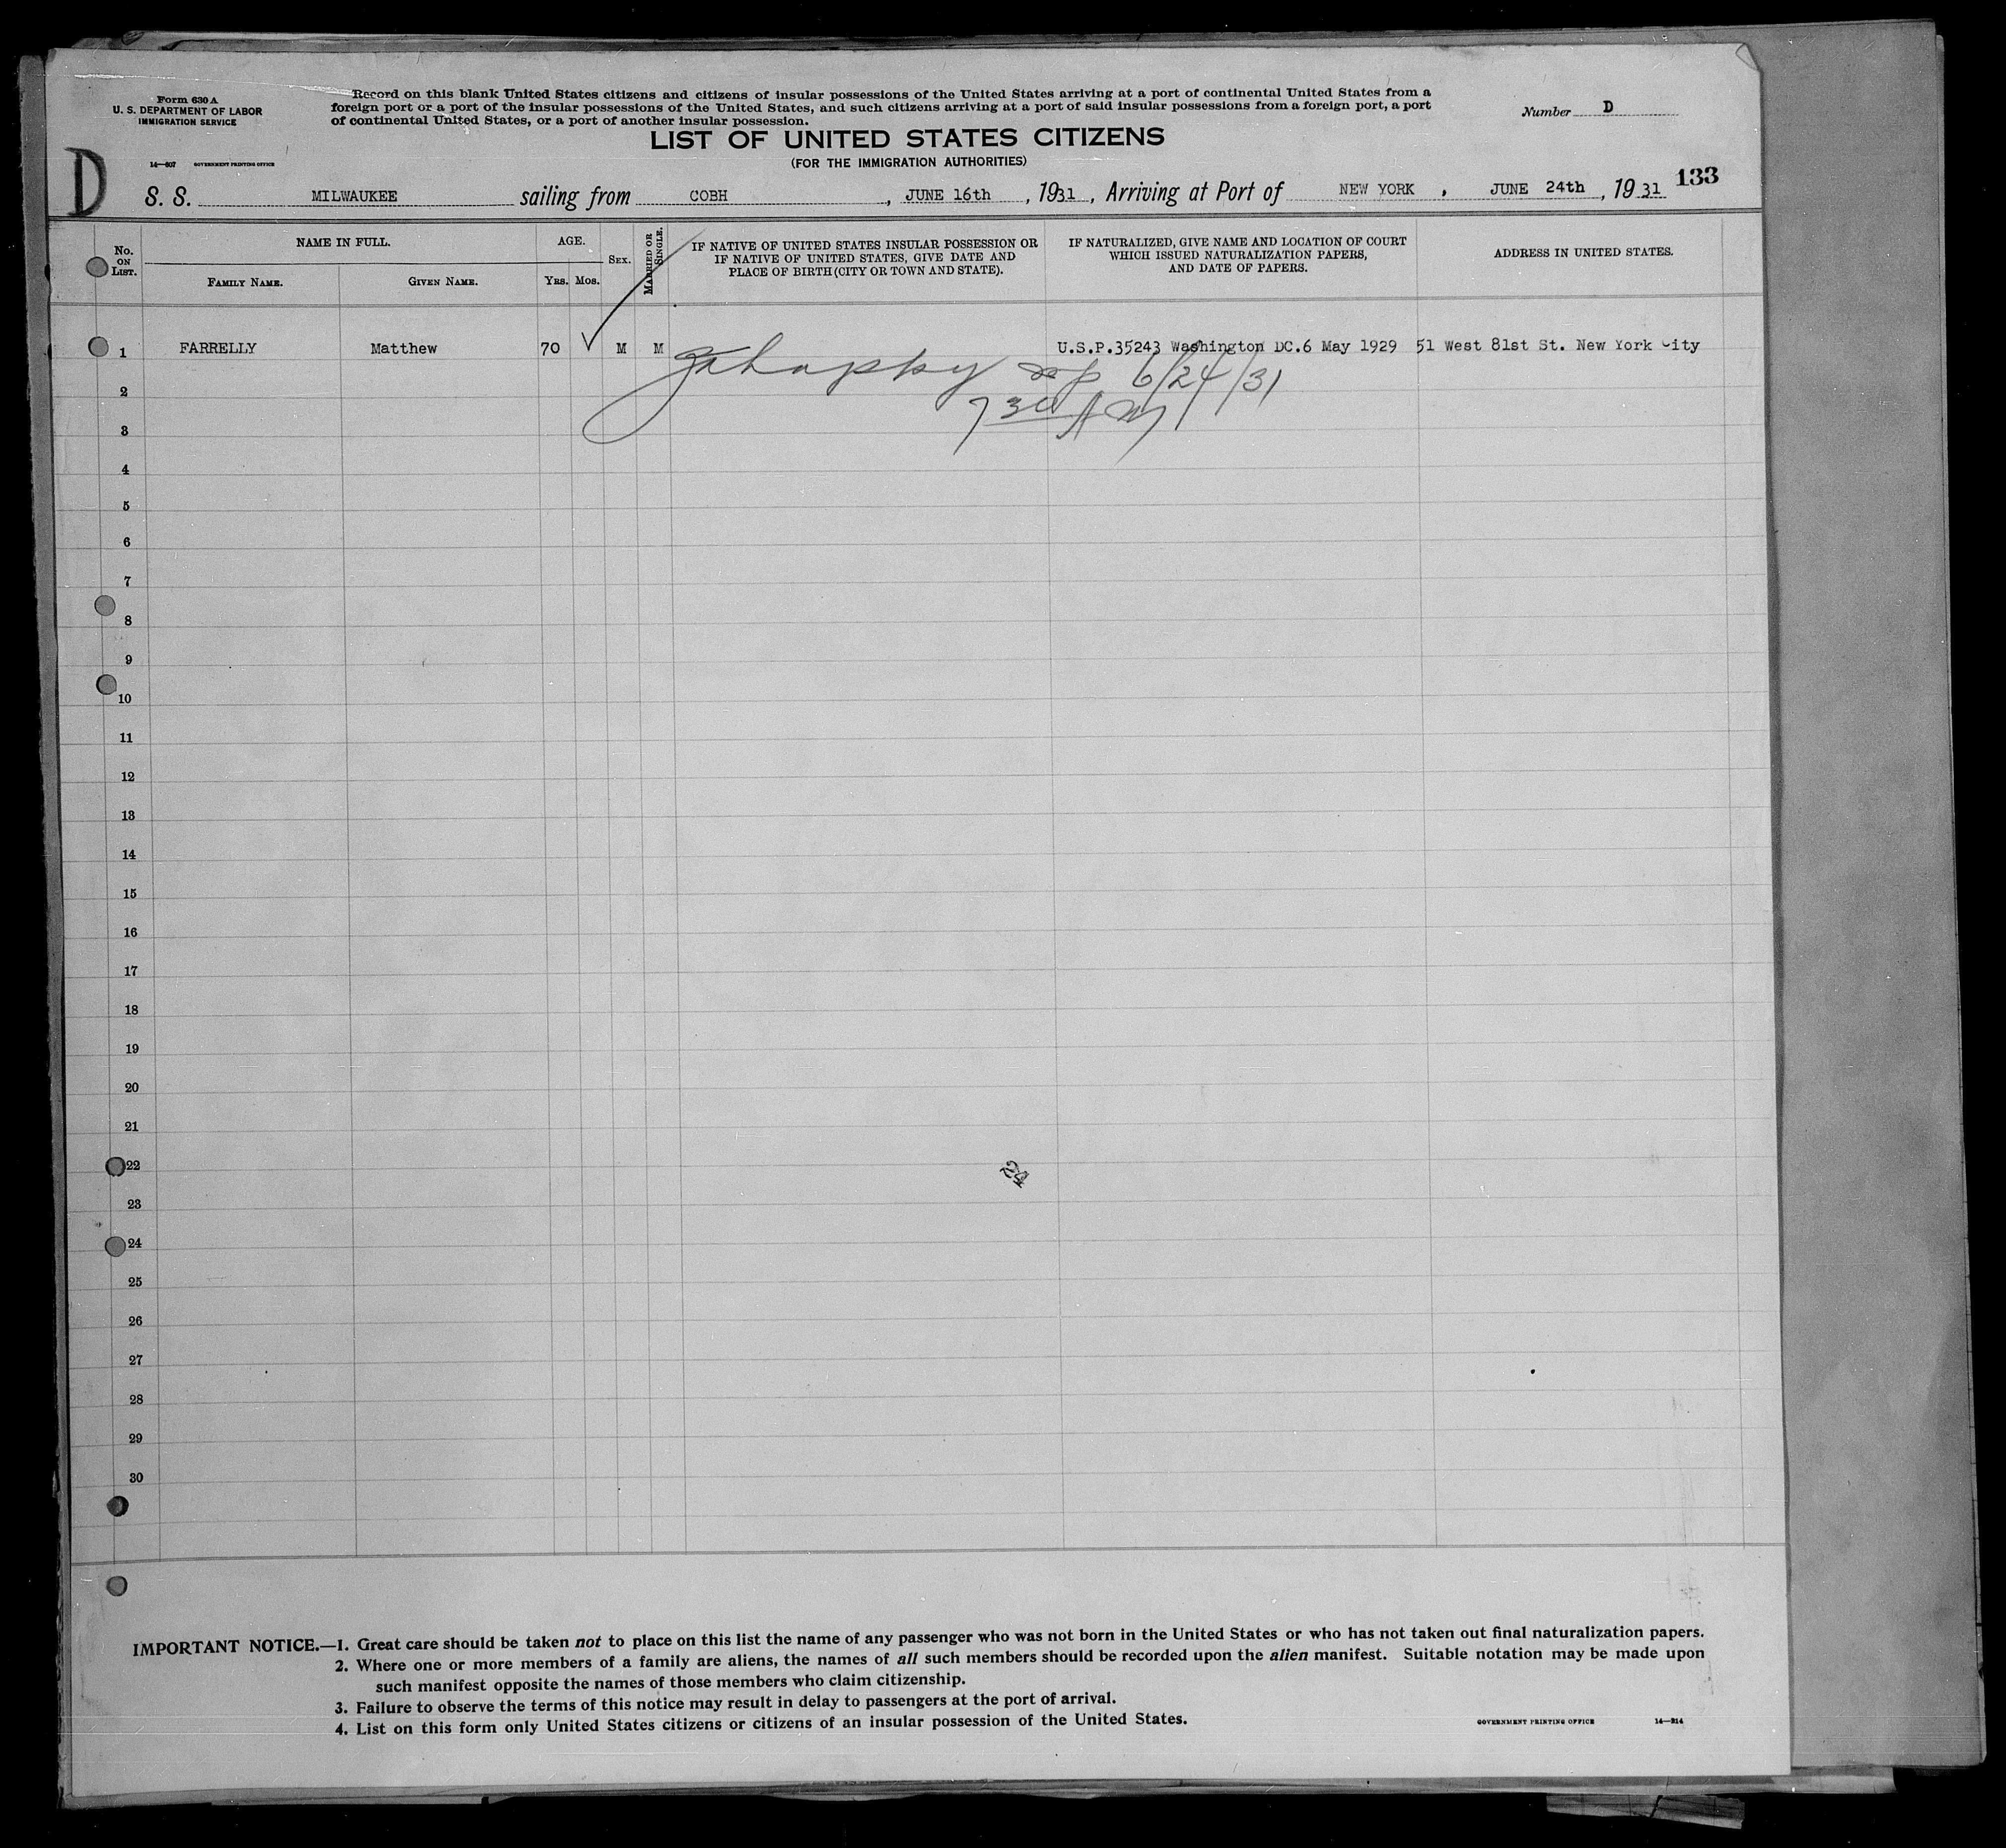 Form 630 A
U. S. DEPARTMENT OF LABOR
IMMIGRATION SERVICE
14—807 GOVERNMENT PRINTING OFFICE
Record on this blank United States citizens and citizens of insular possessions of the United States arriving at a port of continental United States from a
foreign port or a port of the insular possessions of the United States, and such citizens arriving at a port of said insular possessions from a foreign port, a port
of continental United States, or a port of another insular possession.
Number D
LIST OF UNITED STATES CITIZENS
(FOR THE IMMIGRATION AUTHORITIES)
D
133
S. S. MILWAUKEE sailing from COBH, JUNE 16th, 1931, Arriving at Port of NEW YORK, JUNE 24th, 1931
No. ON LIST.
NAME IN FULL.
FAMILY NAME.
GIVEN NAME.
AGE.
YRS. MOS.
SEX.
MARRIED OR SINGLE.
IF NATIVE OF UNITED STATES INSULAR POSSESSION OR
IF NATIVE OF UNITED STATES, GIVE DATE AND
PLACE OF BIRTH (CITY OR TOWN AND STATE).
IF NATURALIZED, GIVE NAME AND LOCATION OF COURT
WHICH ISSUED NATURALIZATION PAPERS,
AND DATE OF PAPERS.
ADDRESS IN UNITED STATES.
1 FARRELLY Matthew 70 M M U.S.P.35243 Washington DC.6 May 1929 51 West 81st St. New York City
6/24/31
2
7 30 AM
3
4
5
6
7
8
9
10
11
12
13
14
15
16
17
18
19
20
21
22
24
23
24
25
26
27
28
29
30
IMPORTANT NOTICE.—1. Great care should be taken not to place on this list the name of any passenger who was not born in the United States or who has not taken out final naturalization papers.
2. Where one or more members of a family are aliens, the names of all such members should be recorded upon the alien manifest. Suitable notation may be made upon
such manifest opposite the names of those members who claim citizenship.
3. Failure to observe the terms of this notice may result in delay to passengers at the port of arrival.
4. List on this form only United States citizens or citizens of an insular possession of the United States.
GOVERNMENT PRINTING OFFICE 14—214